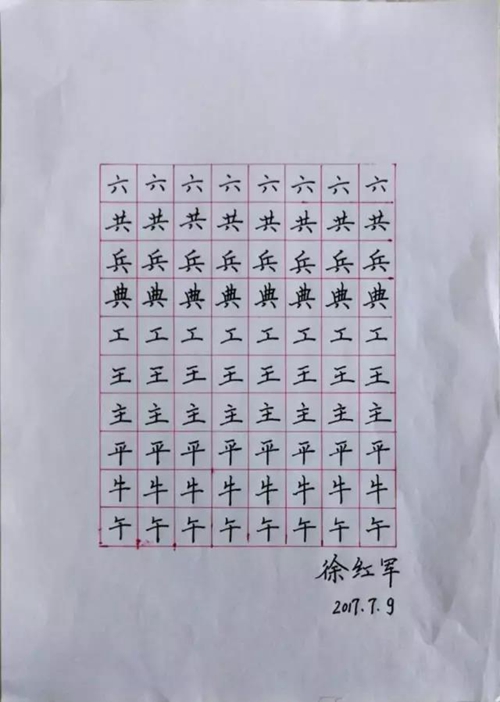 六六六六六六六六
共共共共共共共共
兵兵兵兵兵兵兵兵
典典典典典典典典
工工工工工工工工
王王王王王王王王
主主主主主主主主
平平平平平平平平
牛牛牛牛牛牛牛牛
午午午午午午午午
徐红军
2017.7.9